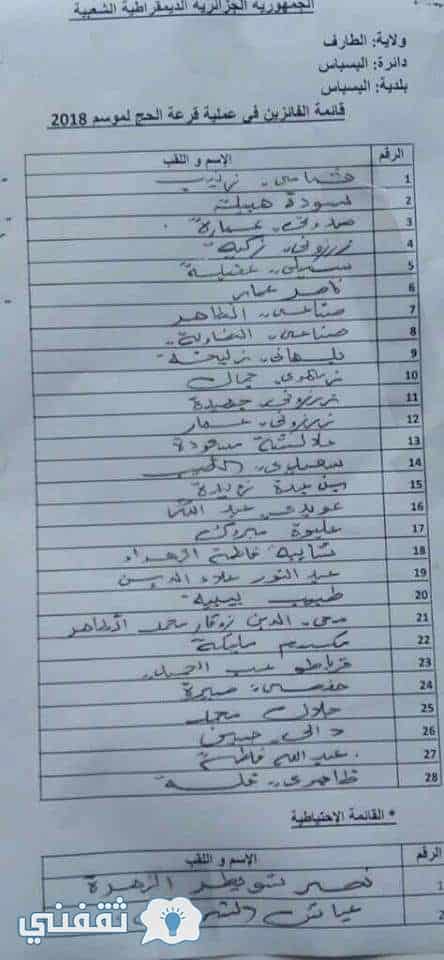 الجمهورية الجزائرية الديمقراطية الشعبية
ولاية: الطارف
دائرة: البسباس
بلدية: البسباس
قائمة الفائزين في عملية قرعة الحج لموسم 2018
الرقم الإسم و اللقب
1 هشامي زينب
2 لسودة هبيلة
3 عمارة
4 مرزوقي زكية
5 عقيلة
6 ناصر عمار
7 صناعي الطاهر
8 صناعي
9 بلهاني زليخة
10 جمال
11
12 عمار
13 علالشة مسعودة
14 الطيب
15 بن عيدة زبيدة
16 عويدي عبد الله
17 عليوة مبروك
18 شايبة فاطمة الزهراء
19 عبد النور علاء الدين
20 طبيب بيبية
21 محي الدين زوقار محمد الطاهر
22 مليكة
23 عبد الحميد
24 حفصي صبرة
25 جلال محمد
26 دالي حسين
27 عبد الله فاطمة
28 طاهري
* القائمة الإحتياطية
الرقم الإسم و اللقب
1 نصير شويطر الزهرة
2 عياش
ثقفني